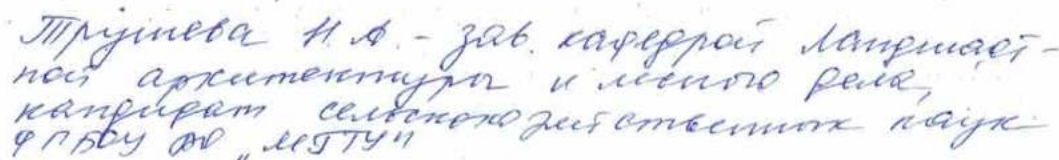 Трушева Н.А. - зав. кафедрой Ландшафт-
ной архитектуры и лесного дела,
кандидат сельскохозяйственных наук
ФГБОУ ВО „МГТУ"